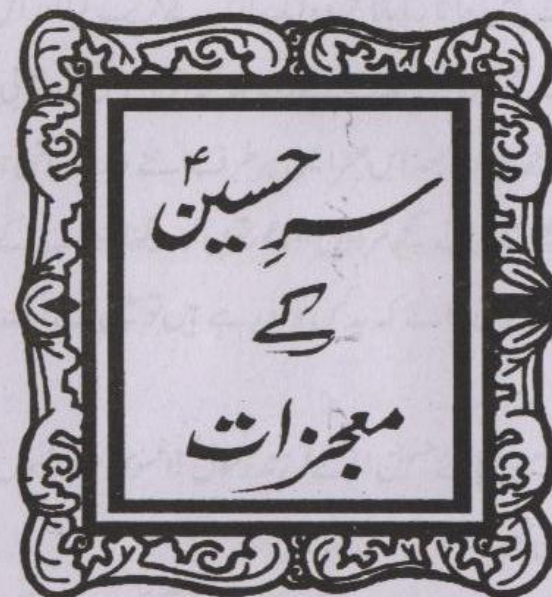 سرِ حسینؑ
کے
معجزات